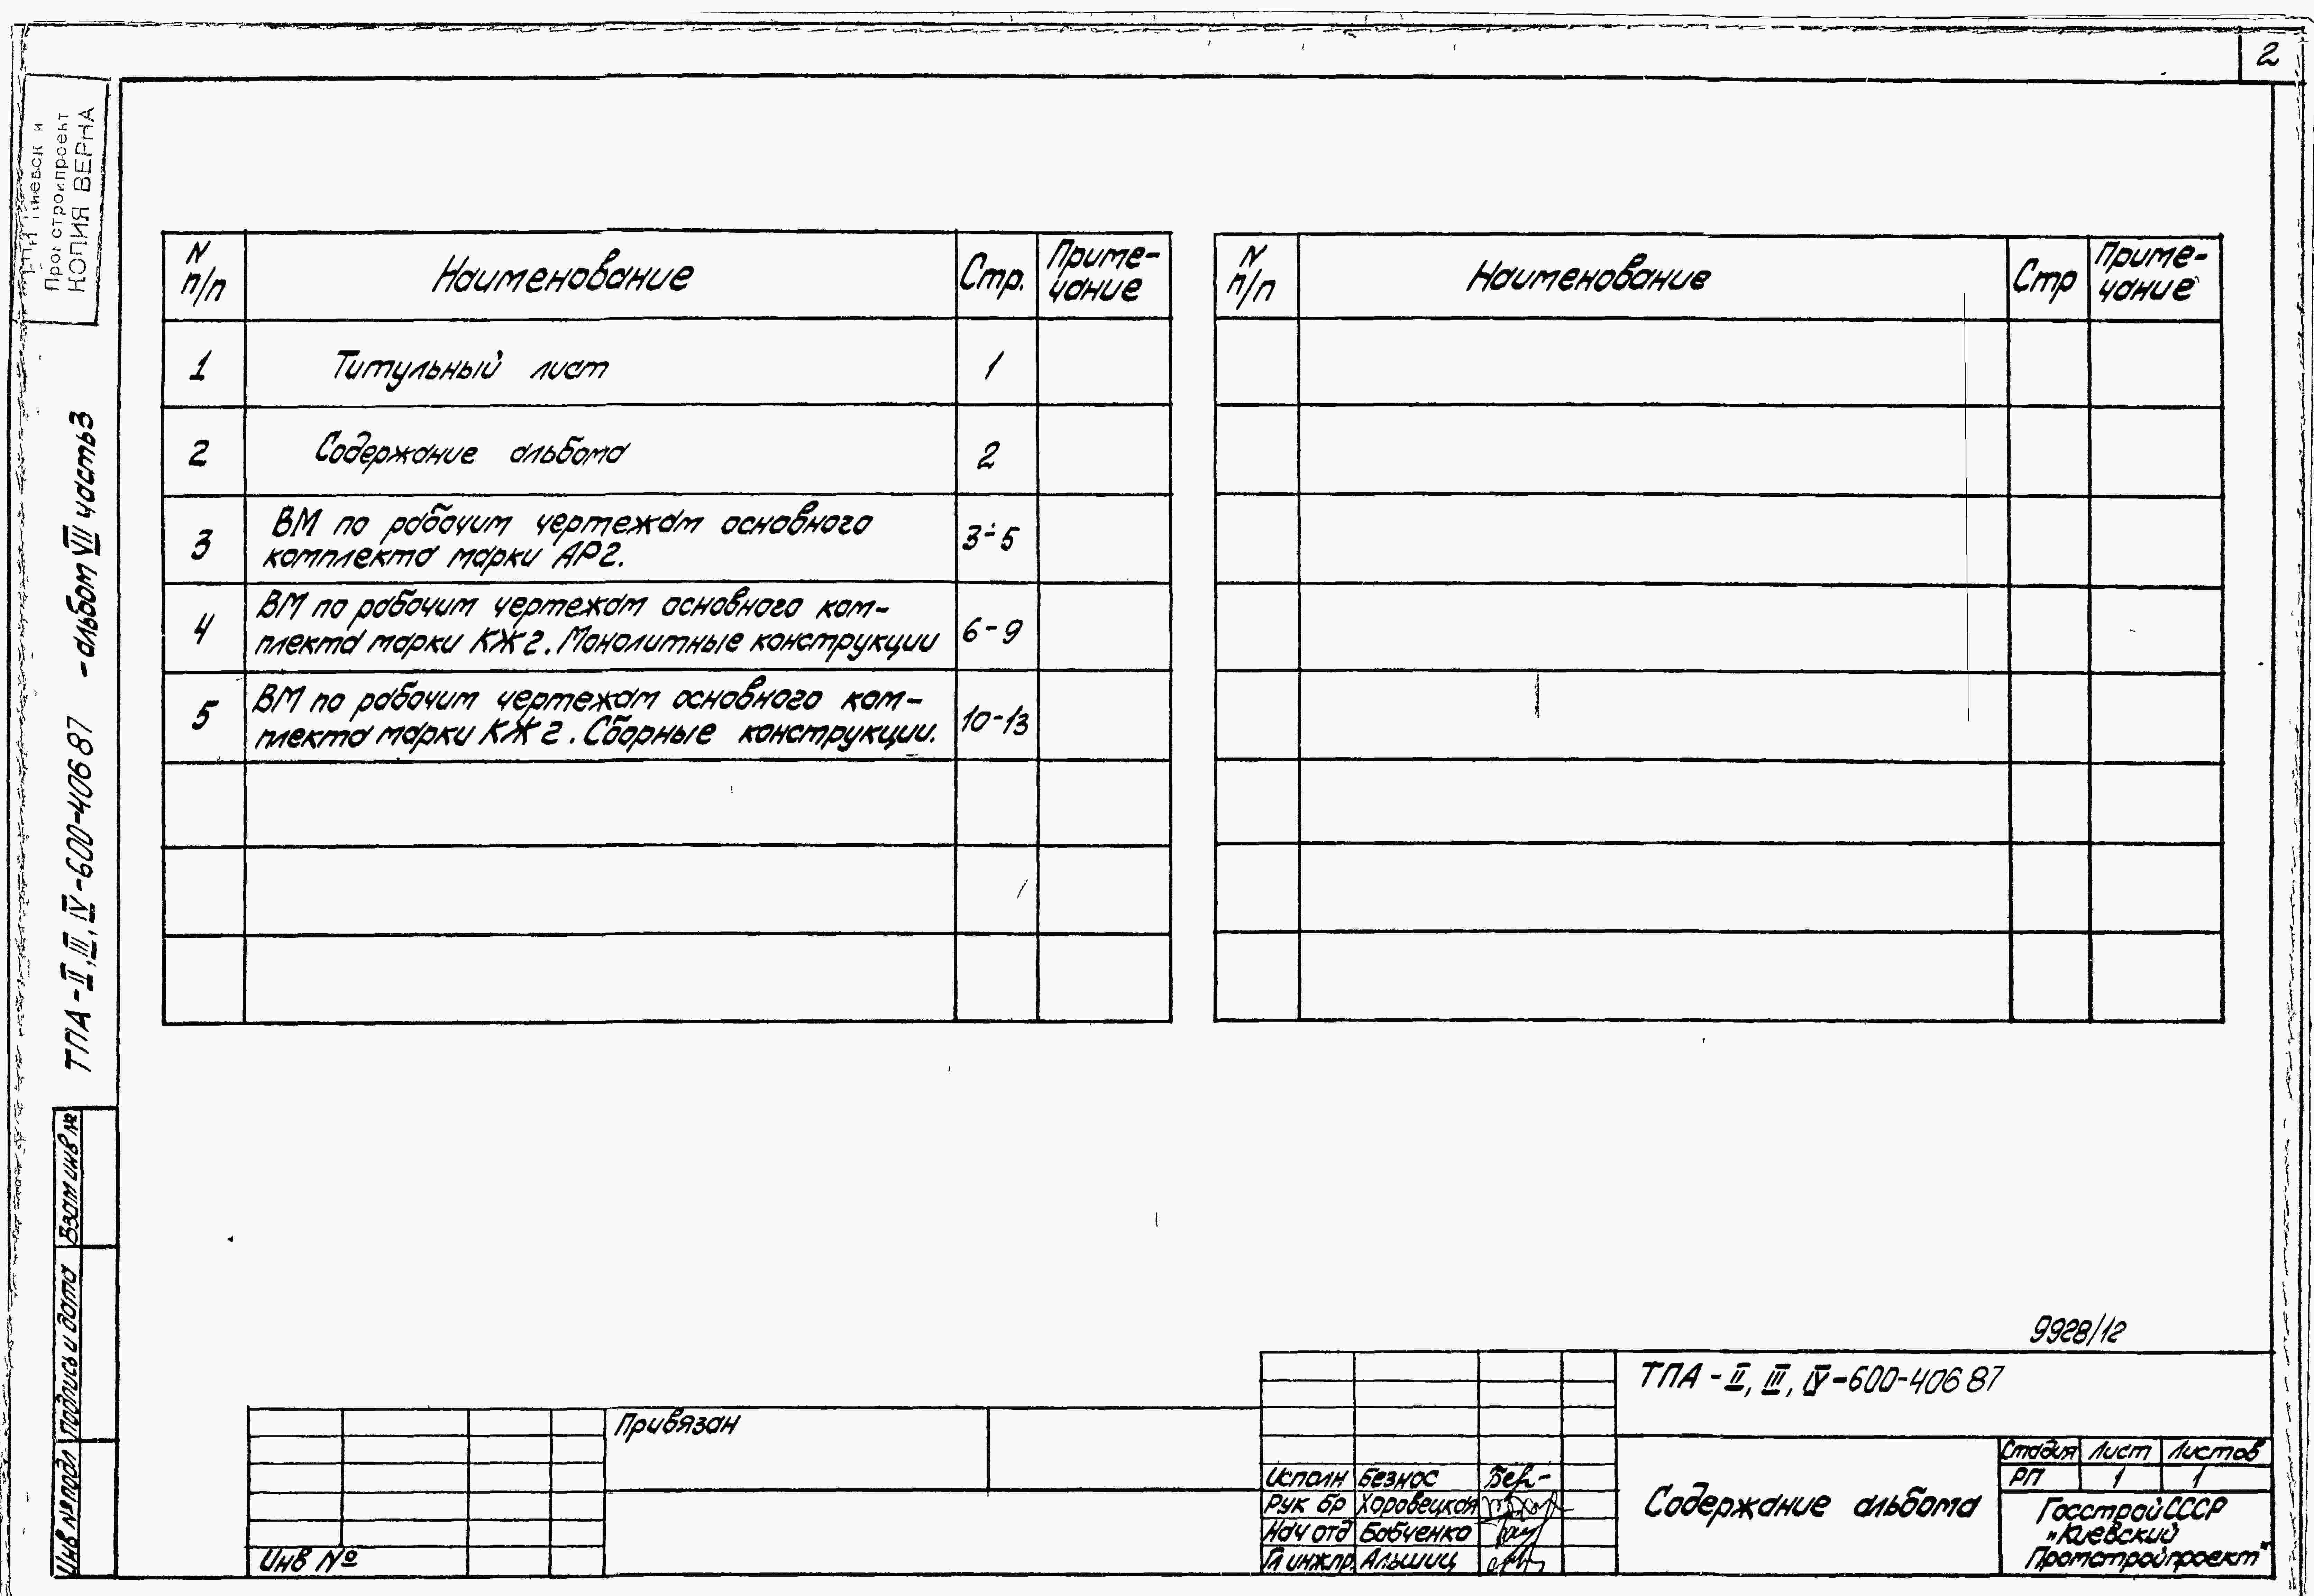 2
Промстройпроект
КОПИЯ ВЕРНА
ТПА-II, III, IV-600-406 87 - альбом VII часть 3
N п/п Наименование Стр. Приме-
чание
1 Титульный лист 1
2 Содержание альбома 2
3 ВМ по рабочим чертежам основного
комплекта марки АР2. 3÷5
4 ВМ по рабочим чертежам основного ком-
плекта марки КЖ2. Монолитные конструкции 6-9
5 ВМ по рабочим чертежам основного ком-
плекта марки КЖ2. Сборные конструкции. 10-13
N п/п Наименование Стр Приме-
чание
Взам инв №
Подпись и дата
Инв № подл
9928/12
ТПА-II, III, IV-600-406 87
Привязан
Инв №
Исполн Безнос
Рук бр Харовецкая
Нач отд Бабченко
Гл инж пр. Альшиц
Содержание альбома
Стадия Лист Листов
РП 1 1
Госстрой СССР
„Киевский
Промстройпроект"